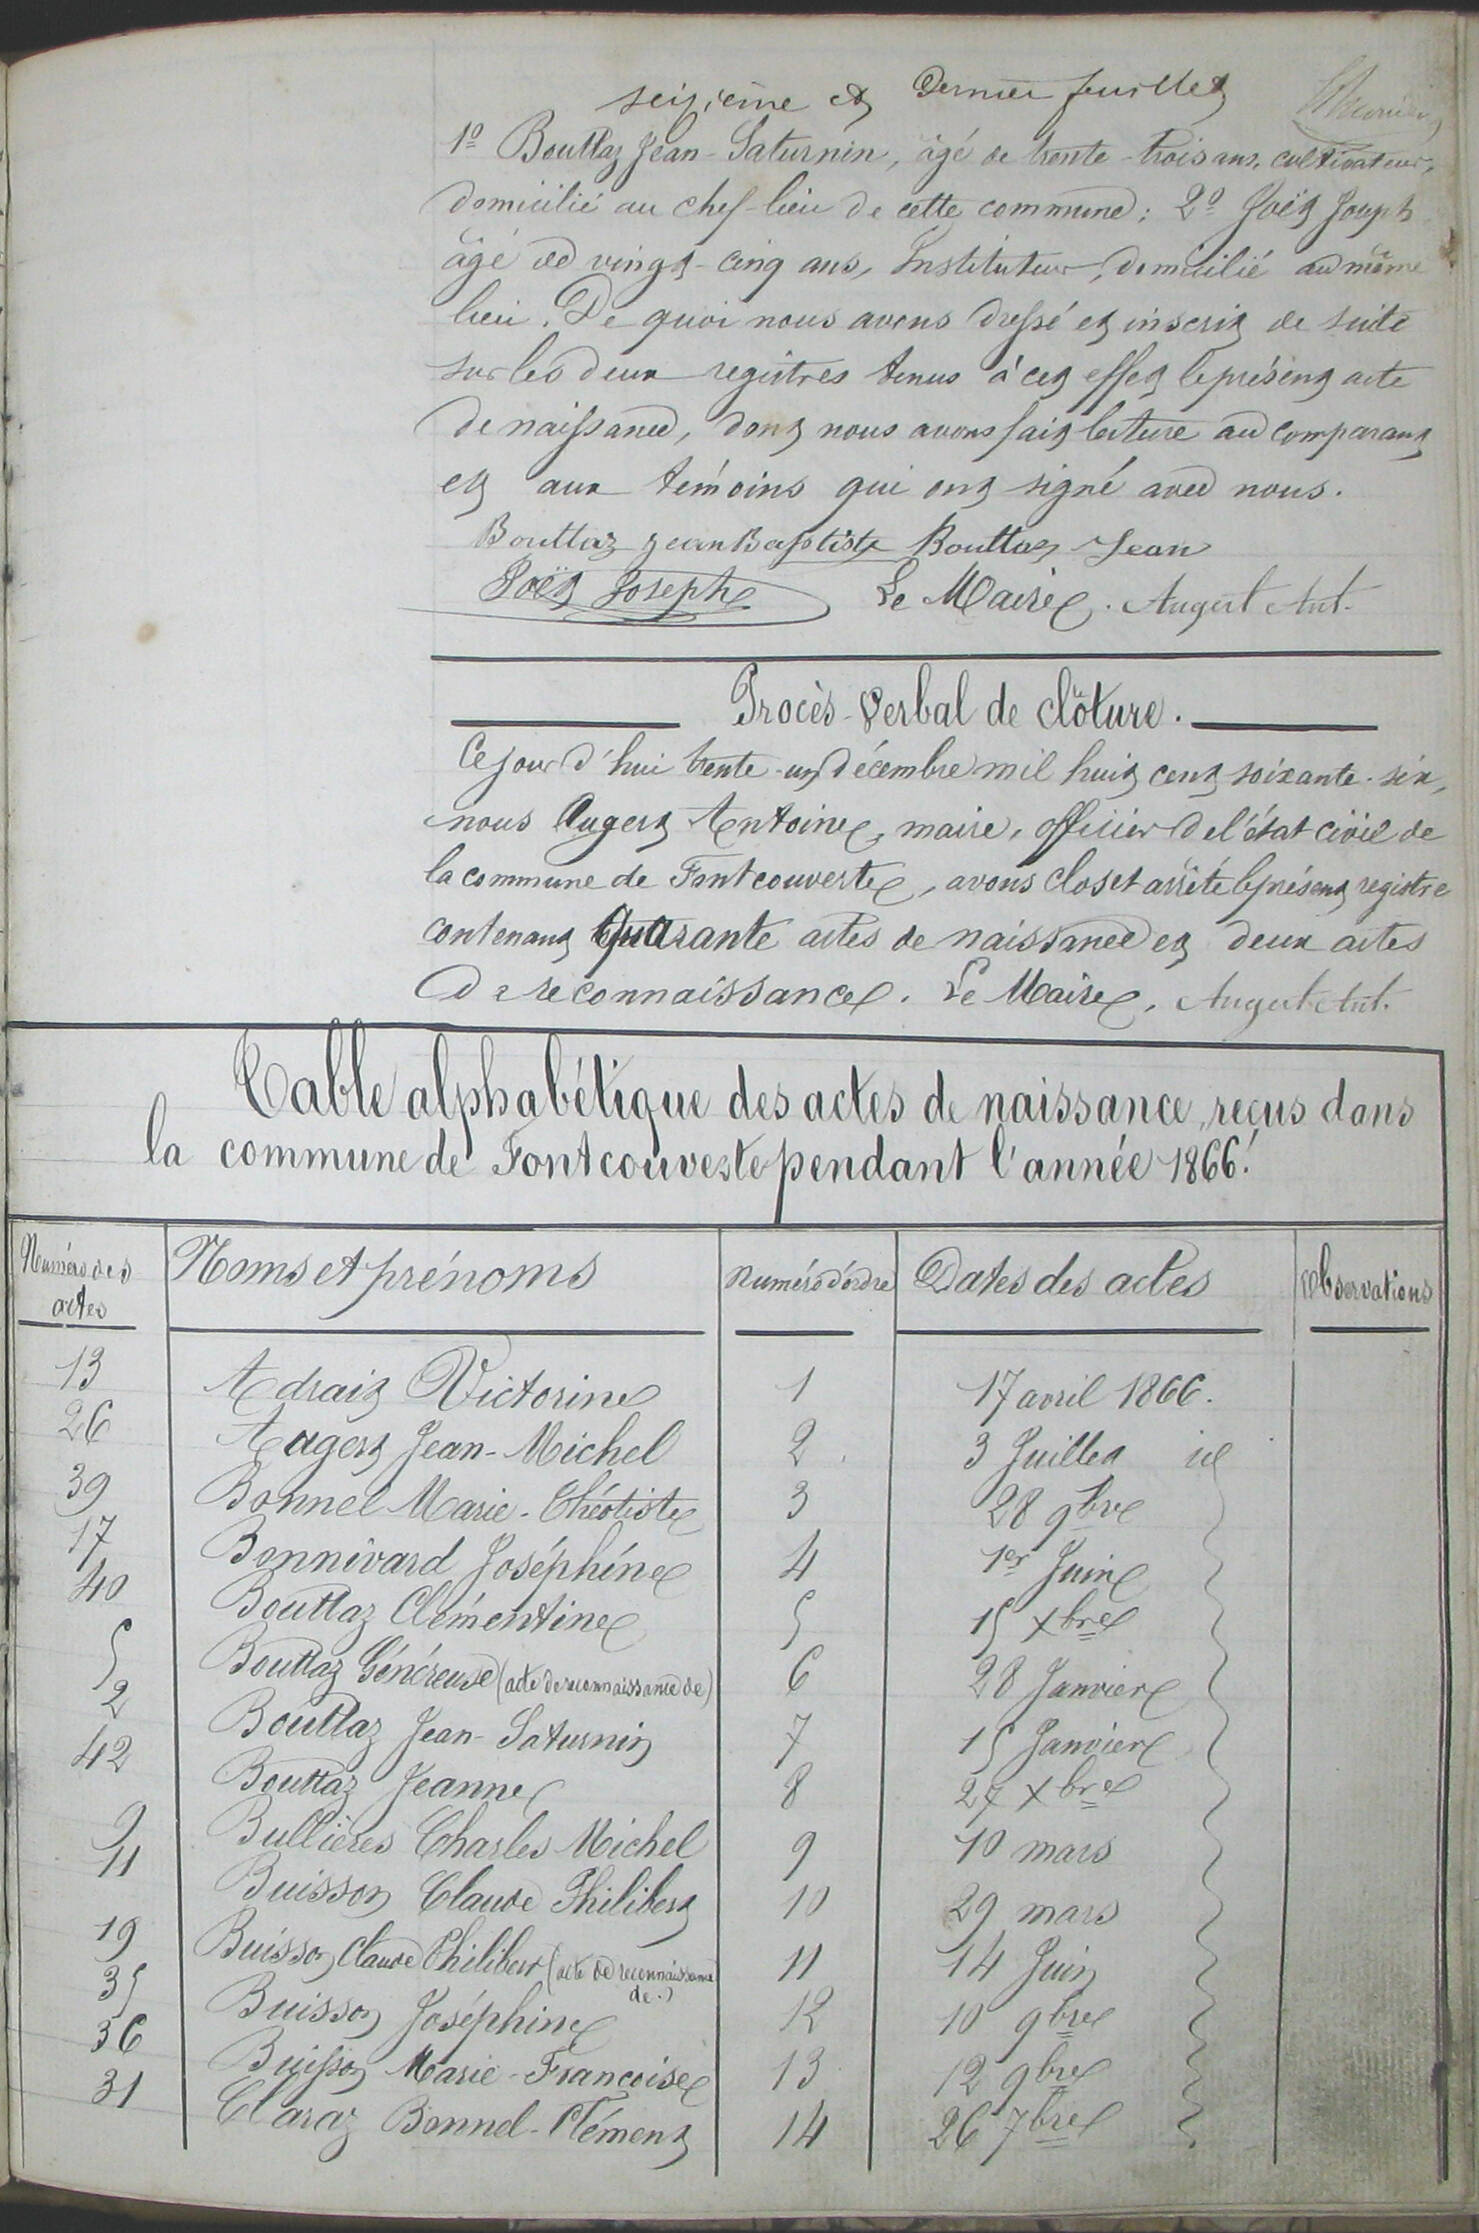 seizième et Dernier feuillet
1º Bouttaz Jean-Saturnin, âgé de trente-trois ans, cultivateur,
domicilié au chef-lieu de cette commune; 2º Joët Joseph
âgé de vingt-cinq ans, Instituteur, domicilié au même
lieu. De quoi nous avons dressé et inscrit de suite
sur les deux registres tenus à cet effet le présent acte
de naissance, dont nous avons fait lecture au comparant
et aux témoins qui ont signé avec nous.
Bouttaz Jean Baptiste Bouttaz Jean
Joët Joseph Le Maire. Augert Ant.
Procès-Verbal de clôture.
Cejourd'hui trente-un décembre mil huit cent soixante-six,
nous Augert Antoine, maire, officier de l'état civil de
la commune de Fontcouverte, avons clos et arrêté le présent registre
contenant quarante actes de naissance et deux actes
de reconnaissance. Le Maire, Augert Ant.
Table alphabétique des actes de naissance reçus dans
la commune de Fontcouverte pendant l'année 1866.
Numéro des actes Noms et prénoms Numéro d'ordre Dates des actes Observations
13 Adrait Victorine 1 17 avril 1866.
26 Augert Jean-Michel 2 3 Juillet id
39 Bonnel Marie-Théotiste 3 28 9bre
17 Bonnivard Joséphine 4 1er Juin
40 Bouttaz Clémentine 5 15 Xbre
5 Bouttaz Généreuse (acte de reconnaissance de) 6 28 Janvier
2 Bouttaz Jean-Saturnin 7 15 Janvier
42 Bouttaz Jeanne 8 27 Xbre
9 Bullières Charles Michel 9 10 mars
11 Buisson Claude Philibert 10 29 mars
19 Buisson Claude Philibert (acte de reconnaissance de.) 11 14 Juin
35 Buisson Joséphine 12 10 9bre
36 Buisson Marie-Françoise 13 12 9bre
31 Claraz Bonnel-Clément 14 26 7bre